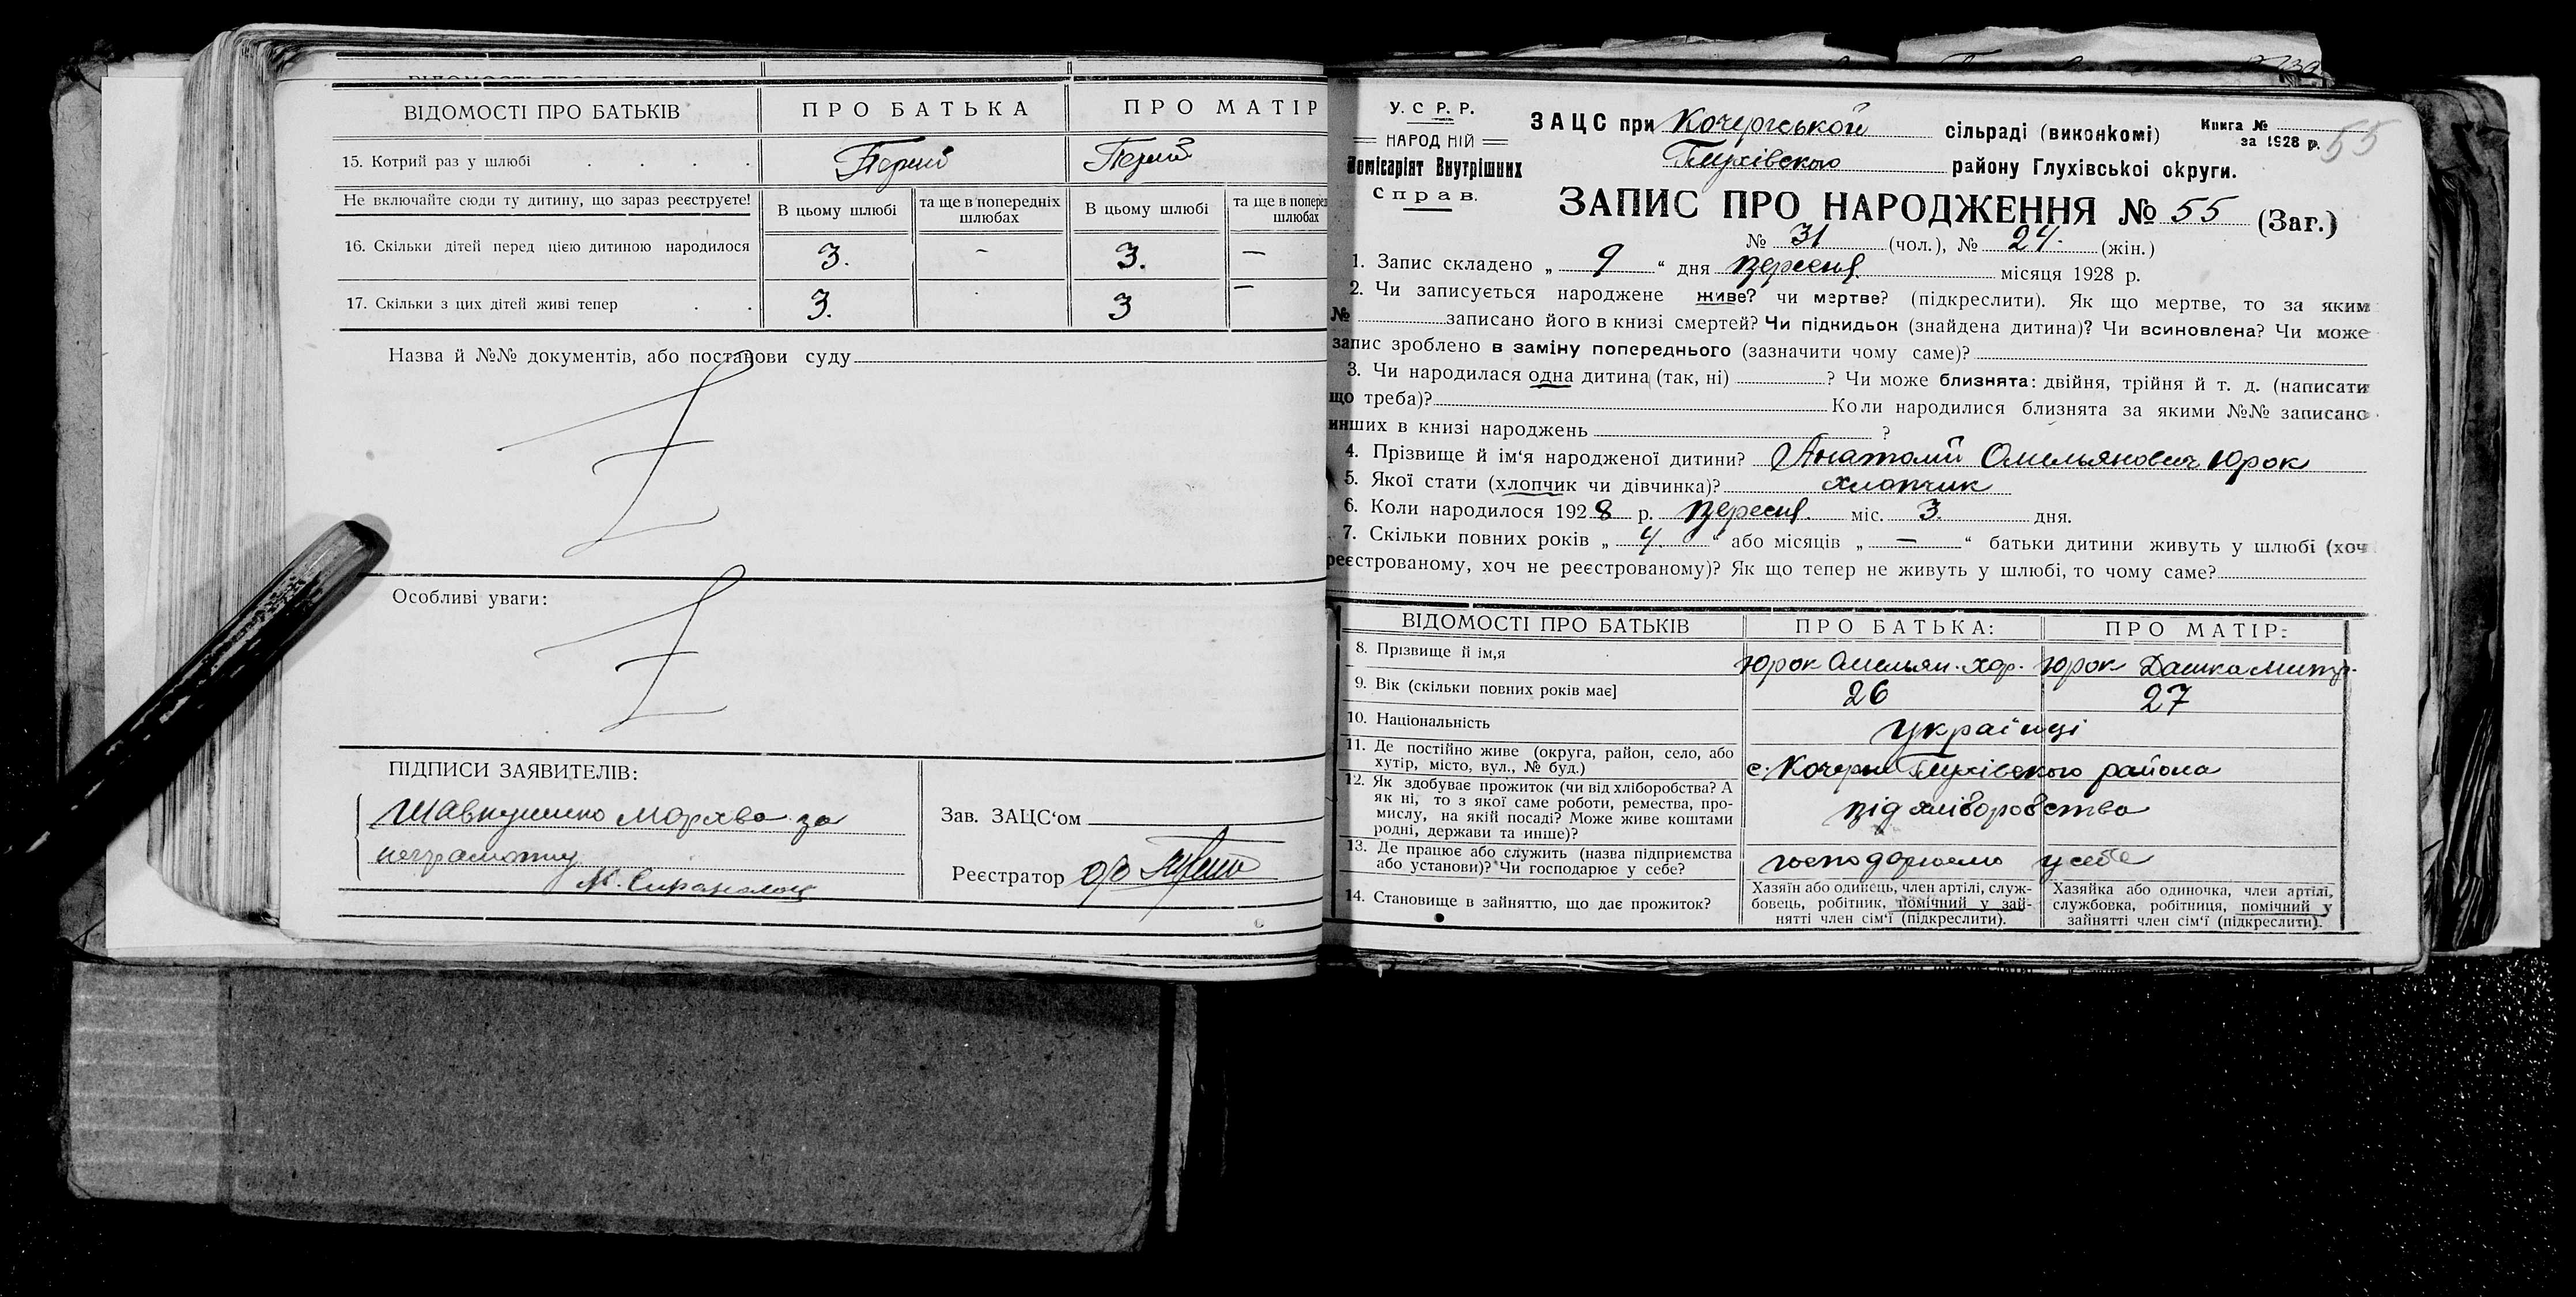 ВІДОМОСТІ ПРО БАТЬКІВ ПРО БАТЬКА ПРО МАТІР
15. Котрий раз у шлюбі . . . . Перий Перий
Не включайте сюди ту дитину, що зараз реєструєте! В цьому шлюбі та ще в попередніх шлюбах В цьому шлюбі та ще в попередн шлюбах
16. Скільки дітей перед цією дитиною народилося 3. – 3. —
17. Скільки з цих дітей живі тепер . . 3. 3 —
Назва й №№ документів, або постанови суду
Особливі уваги:
ПІДПИСИ ЗАЯВИТЕЛІВ:
за
неграмотну
Зав. ЗАЦС‘ом
Реєстратор
У. С. Р. Р.
НАРОДНІЙ
Комісаріят Внутрішних
Справ.
ЗАЦС при Кочергської сільраді (виконкомі)
Глухівского району Глухівської округи.
Книга №
за 1928 р. 55
ЗАПИС ПРО НАРОДЖЕННЯ № 55 (Заг.)
№ 31 (чол.), № 24. (жін.)
1. Запис складено „ 9 “ дня вересня місяця 1928 р.
2. Чи записується народжене живе? чи мертве? (підкреслити). Як що мертве, то за яким
№ записано його в книзі смертей? Чи підкидьок (знайдена дитина)? Чи всиновлена? Чи може
запис зроблено в заміну попереднього (зазначити чому саме)?
3. Чи народилася одна дитина (так, ні) ? Чи може близнята: двійня, трійня й т. д. (написати
що треба)? Коли народилися близнята за якими №№ записано
инших в книзі народжень ?
4. Прізвище й ім‘я народженої дитини? Анатолій Омельянович Юрок
5. Якої статі (хлопчик чи дівчинка)? хлопчик
6. Коли народилося 1928 р. вересня міс. 3. дня.
7. Скільки повних років „ 4. “ або місяців „ — “ батьки дитини живуть у шлюбі (хоч
реєстрованому, хоч не реєстрованому)? Як що тепер не живуть у шлюбі, то чому саме?
ВІДОМОСТІ ПРО БАТЬКІВ ПРО БАТЬКА: ПРО МАТІР:
8. Прізвище й ім‚я Юрок Омельян. Хар. Юрок Дашка Митр.
9. Вік (скільки повних років має] 26 27
10. Національність українці
11. Де постійно живе (округа, район, село, або
хутір, місто, вул., № буд.) с. Кочерги Глухівского района
12. Як здобуває прожиток (чи від хліборобства? А
як ні, то з якої саме роботи, ремества, про-
мислу, на якій посаді? Може живе коштами
родні, держави та инше)? від хліборобства
13. Де працює або служить (назва підприємства
або установи)? Чи господарює у себе? господарюємо у себе
14. Становище в зайняттю, що дає прожиток?
Хазяїн або одинець, член артілі, служ-
бовець, робітник, помічний у зай-
нятті член сім‘ї (підкреслити).
Хазяйка або одиночка, член артілі,
службовка, робітниця, помічний у
зайнятті член сім‘ї (підкреслити).